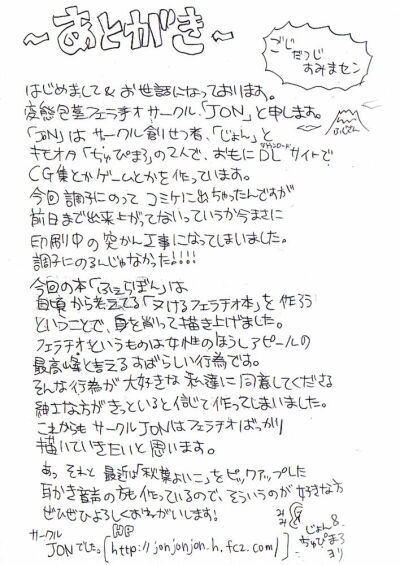 ～あとがき～
ごじ
だつじ
すみまセン
はじめまして&お世話になっております。
変態包茎フェラチオサークル「JON」と申します。
ふじさん
「JON」はサークル創せつ者、「じょん」と
キモオタ「ぢゅぴまる」の2人で、おもにDLサイトで
ダウンロード
CG集とかゲームとかを作っています。
今回調子にのってコミケに出ちゃったんですが
前日まで出来上がってないっていうか今まさに
印刷中の突かん工事になってしまいました。
調子にのるんじゃなかった!!!!
今回の本「ふぇらぼん」は
日頃から考えてる「ヌけるフェラチオ本」を作ろう
ということで、身を削って描き上げました。
フェラチオというものは女性のほうしアピールの
最高峰と言えるすばらしい行為です。
そんな行為が大好きな私達に同意してくださる
紳士な方がきっといると信じて作ってしまいました。
これからもサークルJONはフェラチオばっかり
描いていきたいと思います。
あっそれと最近は「秋葉よいこ」をピックアップした
耳かき音声の方も作っているので、そういうのが好きな方
ぜひぜひよろしくおねがいします!
みみ
サークル
JONでした。
HP
[http://jonjonjon.h.fc2.com/]
じょん&
ぢゅぴまる
より